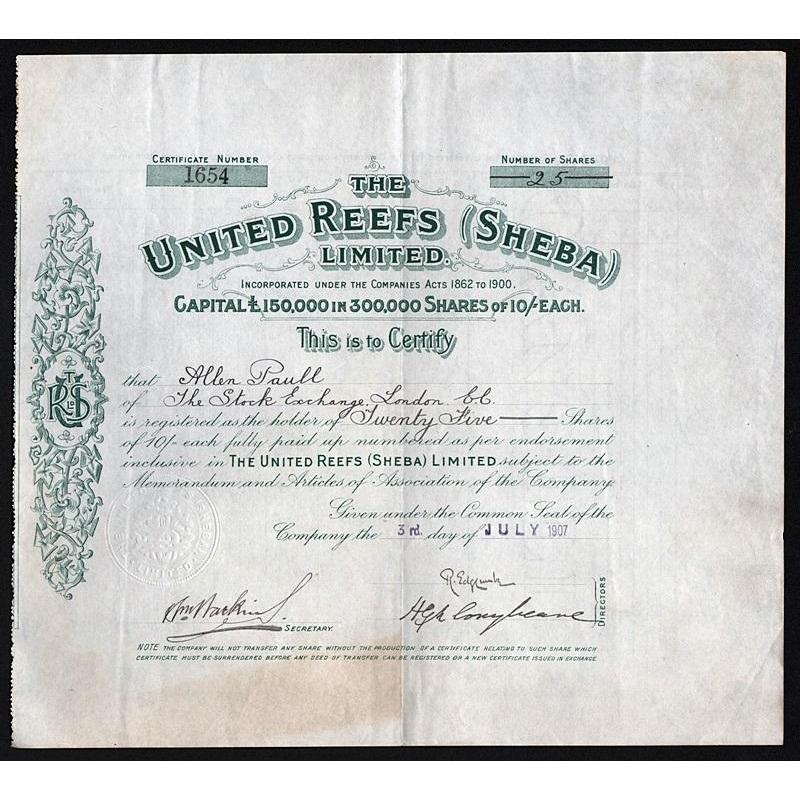 CERTIFICATE NUMBER
1654
NUMBER OF SHARES
25
THE
UNITED REEFS (SHEBA)
LIMITED.
INCORPORATED UNDER THE COMPANIES ACTS 1862 TO 1900.
CAPITAL £150,000 IN 300,000 SHARES OF 10/- EACH.
This is to Certify
that Allen Paull
of The Stock Exchange, London E.C.
is registered as the holder of Twenty Five Shares
of 10/- each fully paid up numbered as per endorsement
inclusive in THE UNITED REEFS (SHEBA) LIMITED subject to the
Memorandum and Articles of Association of the Company
Given under the Common Seal of the
Company the 3rd. day of JULY 1907
SECRETARY.
DIRECTORS
NOTE THE COMPANY WILL NOT TRANSFER ANY SHARE WITHOUT THE PRODUCTION OF A CERTIFICATE RELATING TO SUCH SHARE WHICH
CERTIFICATE MUST BE SURRENDERED BEFORE ANY DEED OF TRANSFER CAN BE REGISTERED OR A NEW CERTIFICATE ISSUED IN EXCHANGE